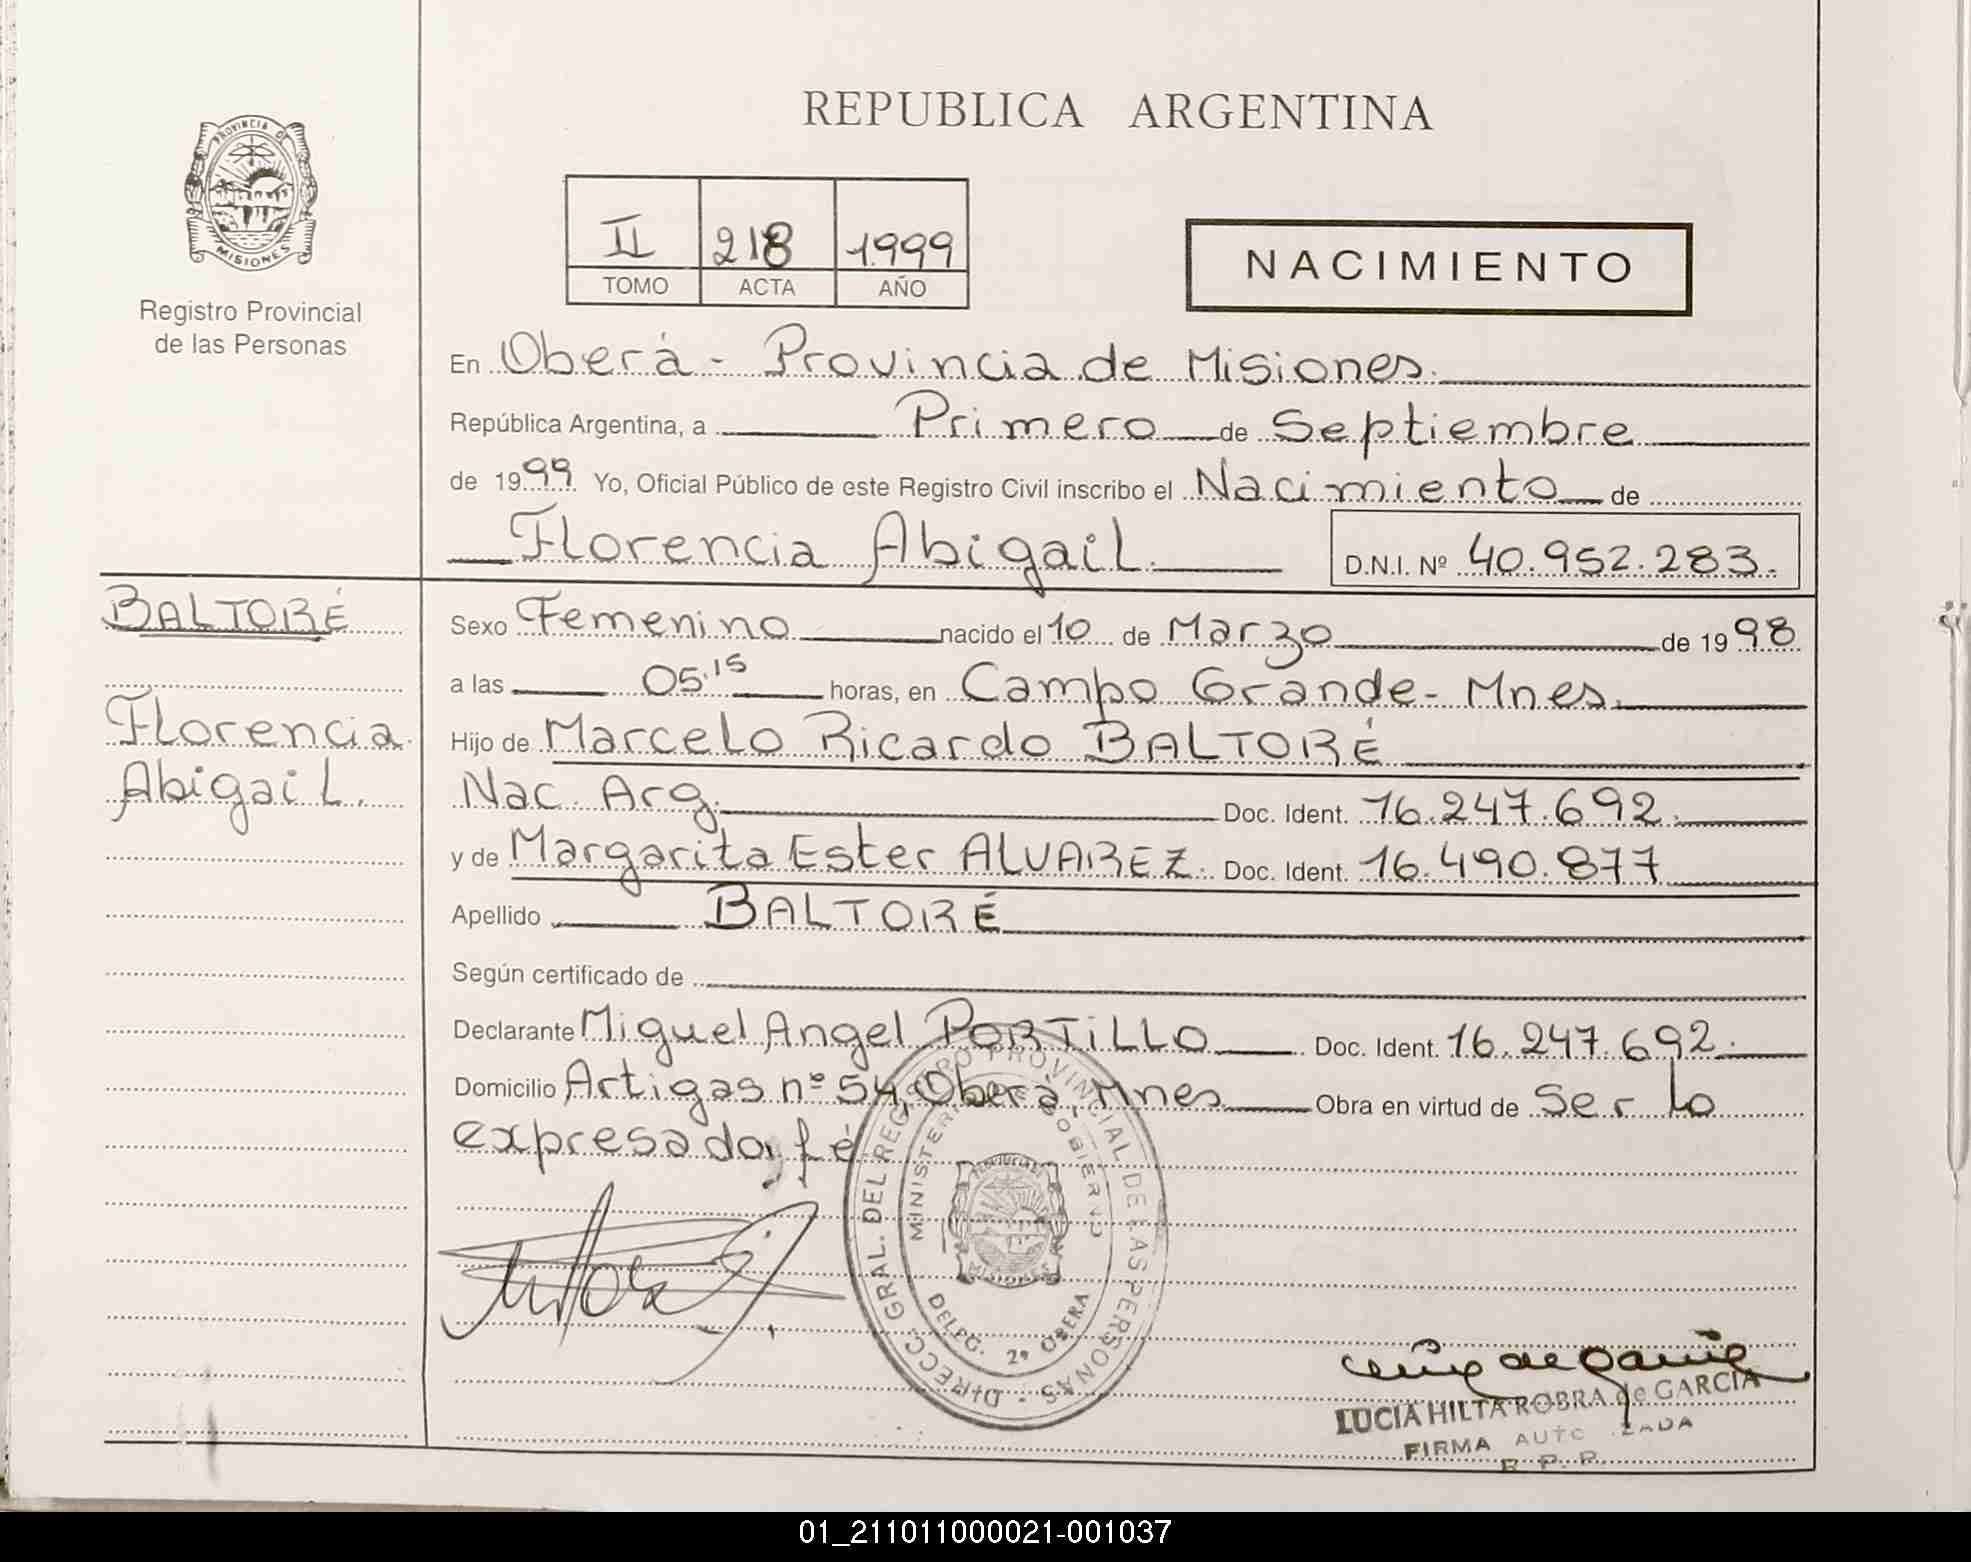 REPUBLICA ARGENTINA
PROVINCIA D
MISIONES
Registro Provincial
de las Personas
II 218 1.999
TOMO ACTA AÑO
NACIMIENTO
En Oberá - Provincia de Misiones.
República Argentina, a Primero de Septiembre
de 1999 Yo, Oficial Público de este Registro Civil inscribo el Nacimiento de
Florencia Abigail. D.N.I. Nº 40.952.283.
BALTORÉ
Florencia
Abigail.
Sexo Femenino nacido el 10 de Marzo de 1998
a las 05.15 horas, en Campo Grande - Mnes.
Hijo de Marcelo Ricardo BALTORÉ
Nac. Arg. Doc. Ident. 16.247.692.
y de Margarita Ester ALVAREZ. Doc. Ident. 16.490.877
Apellido BALTORÉ
Según certificado de
Declarante Miguel Angel PORTILLO Doc. Ident. 16.247.692.
Domicilio Artigas nº 54, Oberá, Mnes Obra en virtud de Ser lo
expresado, fé
DIRECC. GRAL. DEL REGISTRO PROVINCIAL DE LAS PERSONAS
MINISTERIO DE GOBIERNO
MISIONES
DELEG. 2ª OBERA
LUCIA HILTA ROBRA de GARCIA
FIRMA AUTO ZADA
R. P. P.
01_211011000021-001037